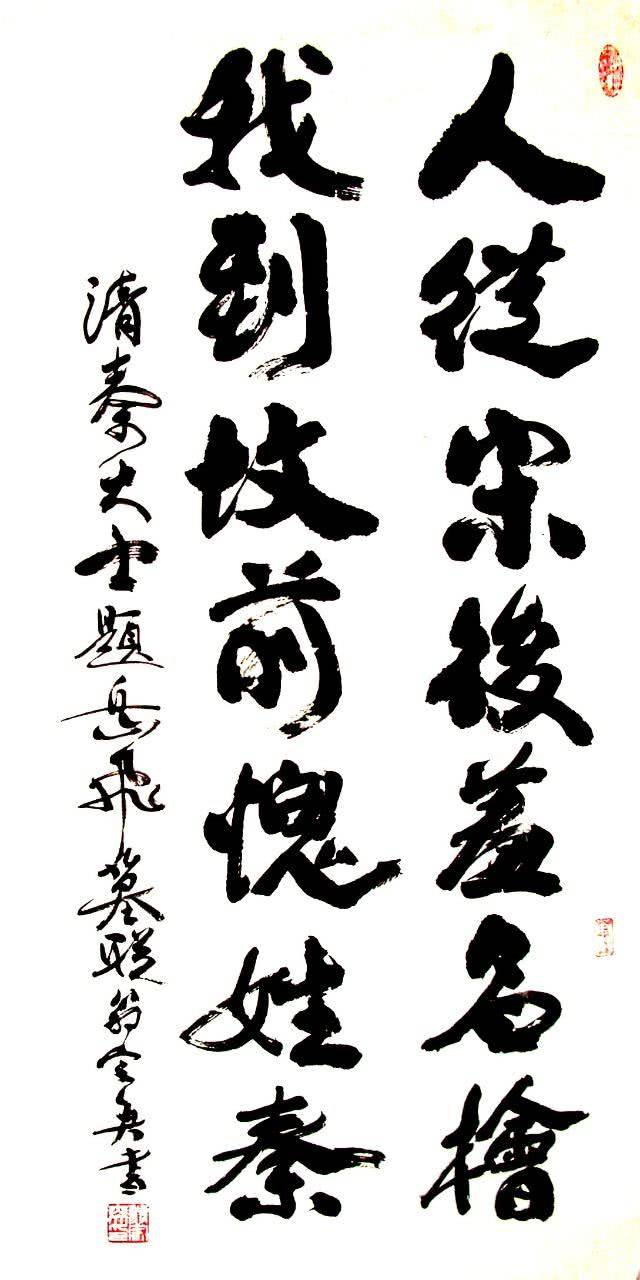 人從宋後羞名檜
我到坟前愧姓秦
清秦大士題岳飛墓联翁書